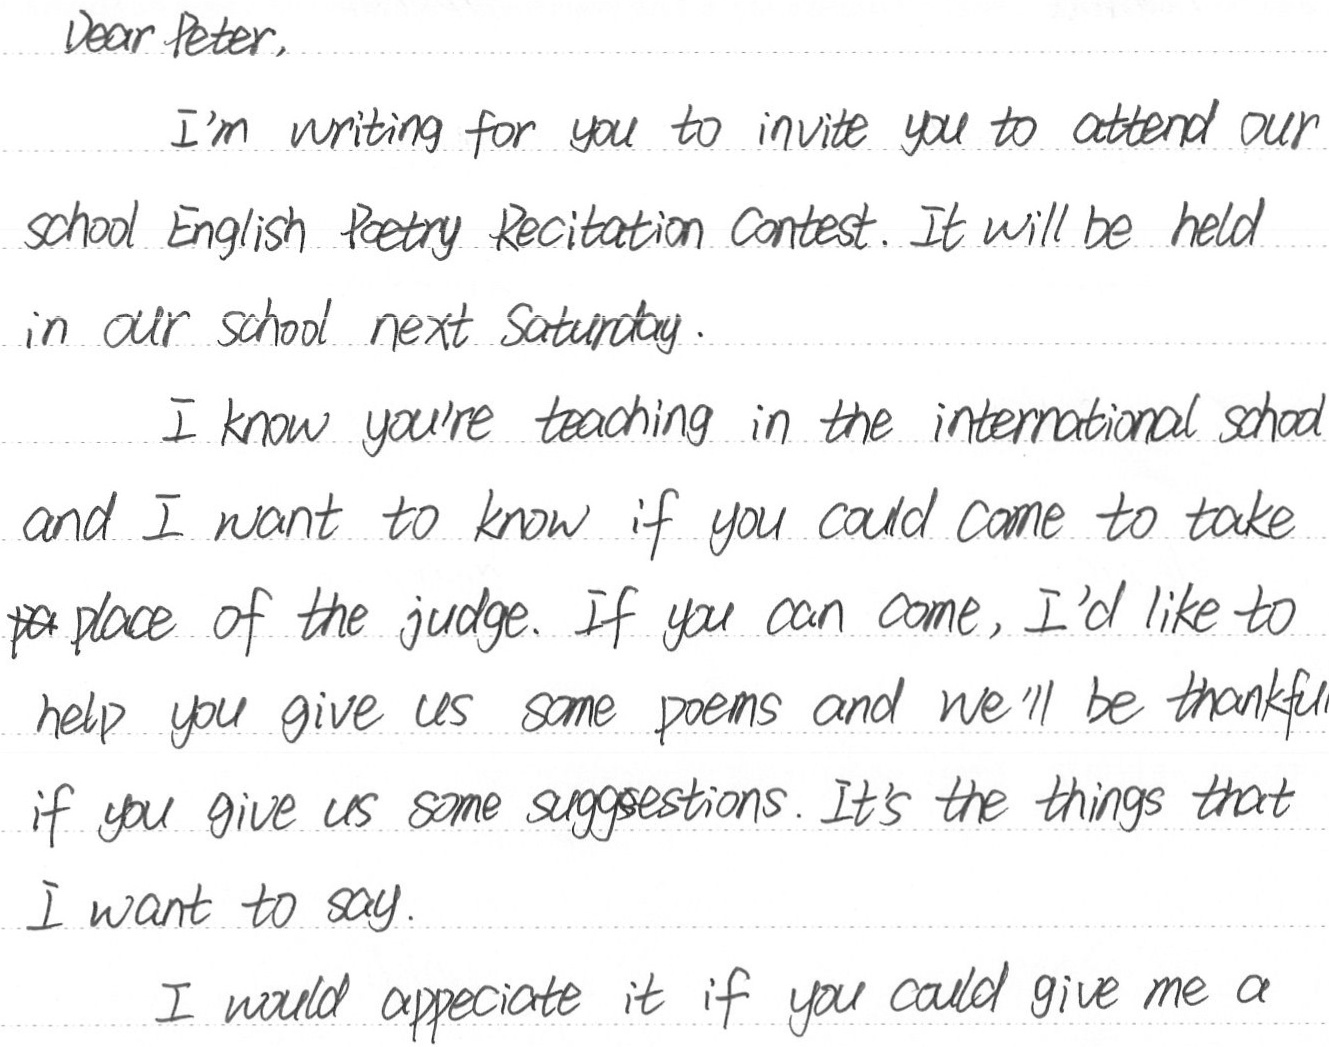 Dear Peter,
I'm writing for you to invite you to attend our
school English Poetry Recitation Contest. It will be held
in our school next Saturday.
I know you're teaching in the international school
and I want to know if you could come to take
place of the judge. If you can come, I'd like to
help you give us some poems and we'll be thankful
if you give us some suggsestions. It's the things that
I want to say.
I would appeciate it if you could give me a